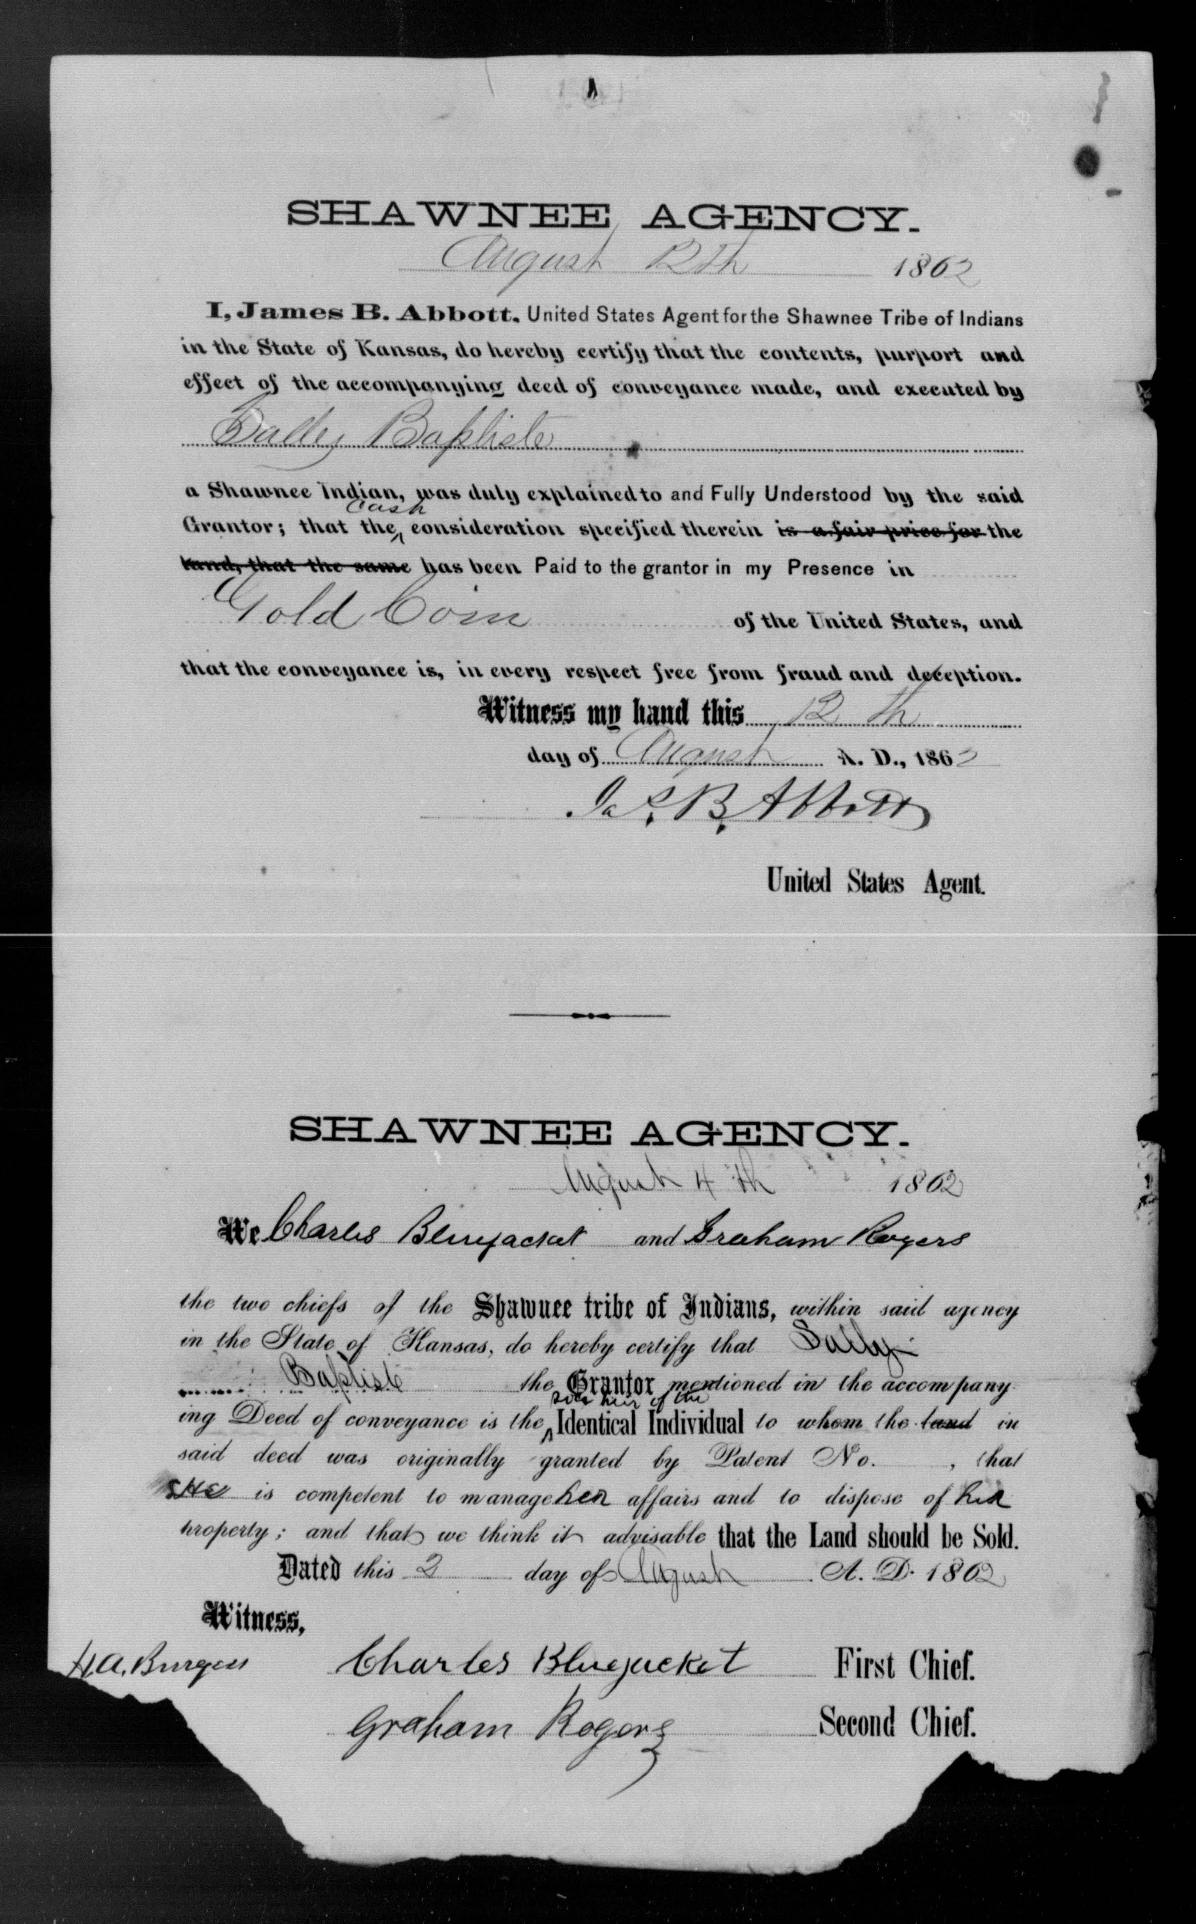 SHAWNEE AGENCY.
August 12th 1862
I, James B. Abbott, United States Agent for the Shawnee Tribe of Indians
in the State of Kansas, do hereby certify that the contents, purport and
effect of the accompanying deed of conveyance made, and executed by
Sally Baptiste
a Shawnee Indian, was duly explained to and Fully Understood by the said
cash
Grantor; that the consideration specified therein is a fair price for the
land, that the same has been Paid to the grantor in my Presence in
Gold Coin of the United States, and
that the conveyance is, in every respect free from fraud and deception.
Witness my hand this 12th
day of August A. D., 1862
Jas. B. Abbott
United States Agent.
SHAWNEE AGENCY.
August 4th 1862
We Charles Bluejacket and Graham Rogers
the two chiefs of the Shawnee tribe of Indians, within said agency
in the State of Kansas, do hereby certify that Sally
Baptiste the Grantor mentioned in the accompany-
sole heir of the
ing Deed of conveyance is the Identical Individual to whom the land in
said deed was originally granted by Patent No. , that
SHe is competent to manage her affairs and to dispose of her
property; and that we think it advisable that the Land should be Sold.
Dated this 2 day of August A. D. 1862
Witness,
H.A. Burgess Charles Bluejacket First Chief.
Graham Rogers Second Chief.